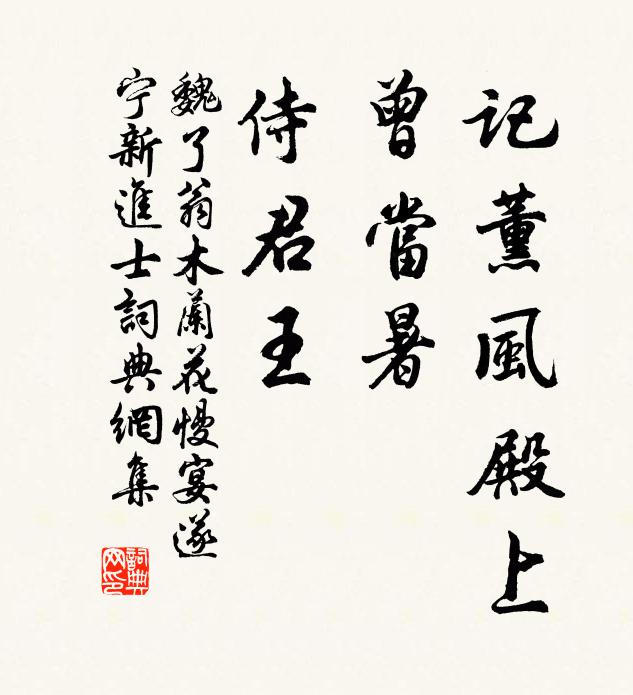 記薰風殿上
曾當暑
侍君王
魏了翁木蘭花慢宴遂
宁新進士詞典網集
詞典网印